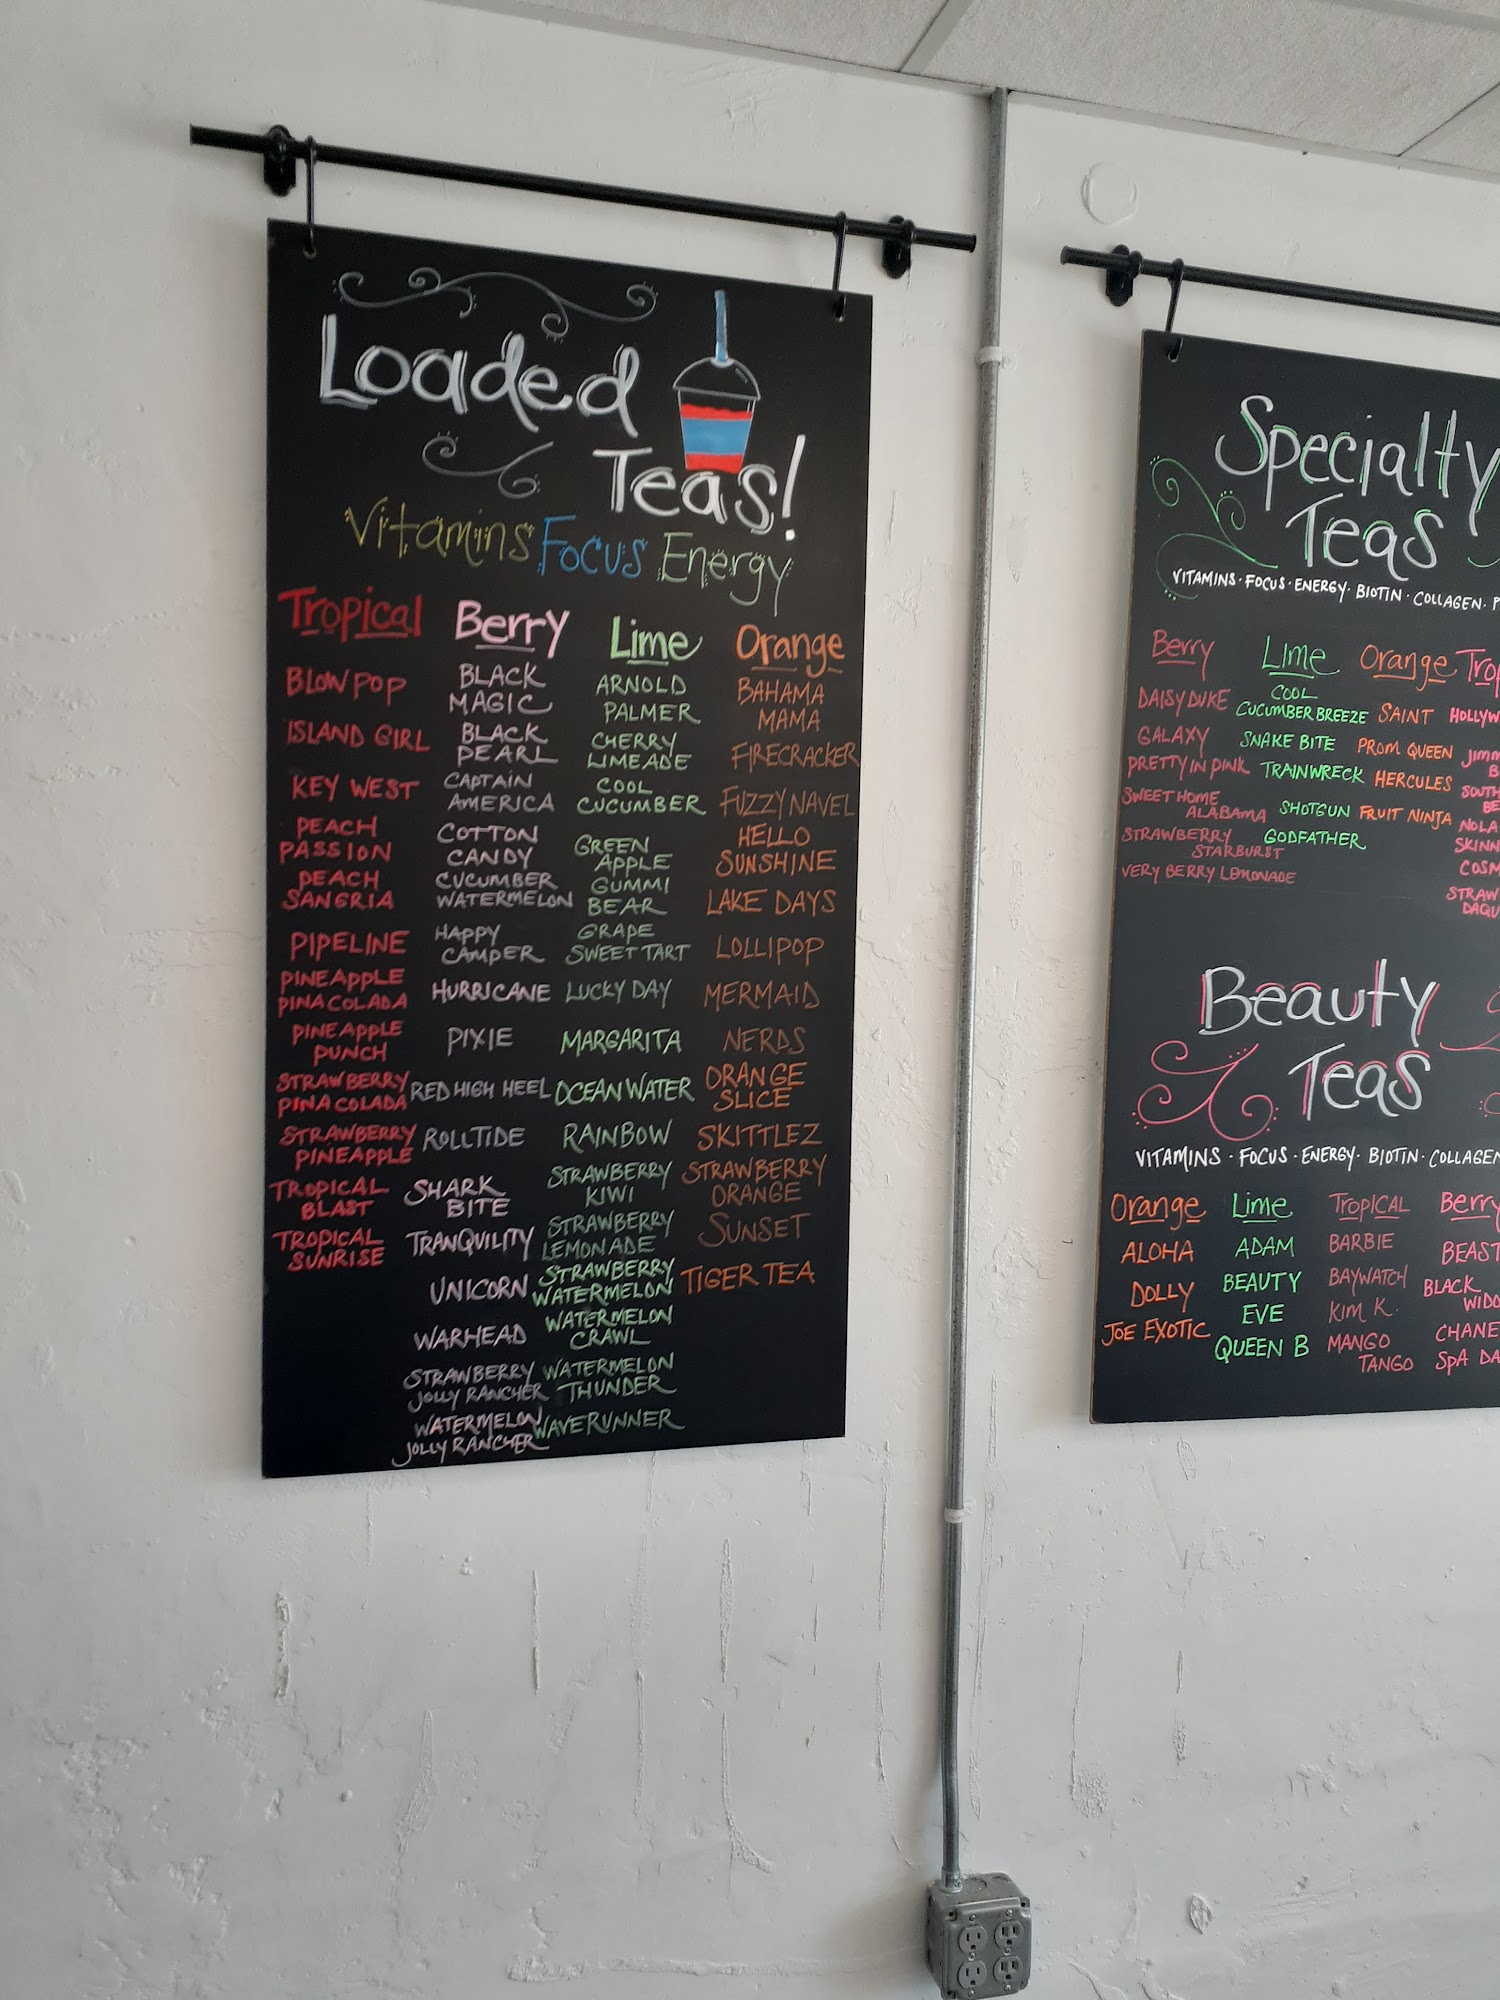 Loaded
Teas!
Vitamins Focus Energy
Tropical
BLOW POP
ISLAND GIRL
KEY WEST
PEACH
PASSION
PEACH
SANGRIA
PIPELINE
PINEAPPLE
PINA COLADA
PINEAPPLE
PUNCH
STRAWBERRY
PINA COLADA
STRAWBERRY
PINEAPPLE
TROPICAL
BLAST
TROPICAL
SUNRISE
Berry
BLACK
MAGIC
BLACK
PEARL
CAPTAIN
AMERICA
COTTON
CANDY
CUCUMBER
WATERMELON
HAPPY
CAMPER
HURRICANE
PIXIE
RED HIGH HEEL
ROLLTIDE
SHARK
BITE
TRANQUILITY
UNICORN
WARHEAD
STRAWBERRY
JOLLY RANCHER
WATERMELON
JOLLY RANCHER
Lime
ARNOLD
PALMER
CHERRY
LIMEADE
COOL
CUCUMBER
GREEN
APPLE
GUMMI
BEAR
GRAPE
SWEET TART
LUCKY DAY
MARGARITA
OCEAN WATER
RAINBOW
STRAWBERRY
KIWI
STRAWBERRY
LEMONADE
STRAWBERRY
WATERMELON
WATERMELON
CRAWL
WATERMELON
THUNDER
WAVERUNNER
Orange
BAHAMA
MAMA
FIRECRACKER
FUZZY NAVEL
HELLO
SUNSHINE
LAKE DAYS
LOLLIPOP
MERMAID
NERDS
ORANGE
SLICE
SKITTLEZ
STRAWBERRY
ORANGE
SUNSET
TIGER TEA
Specialty
Teas
VITAMINS · FOCUS · ENERGY · BIOTIN · COLLAGEN · P
Berry
DAISY DUKE
GALAXY
PRETTY IN PINK
SWEET HOME
ALABAMA
STRAWBERRY
STARBURST
VERY BERRY LEMONADE
Lime
COOL
CUCUMBER BREEZE
SNAKE BITE
TRAINWRECK
SHOTGUN
GODFATHER
Orange
SAINT
PROM QUEEN
HERCULES
FRUIT NINJA
Trop
HOLLYW
Jimm
B
SOUTH
BE
NOLA
SKINN
COSM
STRAW
DAQU
Beauty
Teas
VITAMINS · FOCUS · ENERGY · BIOTIN · COLLAGEN
Orange
ALOHA
DOLLY
JOE EXOTIC
Lime
ADAM
BEAUTY
EVE
QUEEN B
TROPICAL
BARBIE
BAYWATCH
KIM K.
MANGO
TANGO
Berry
BEAST
BLACK
WIDO
CHANE
SPA DA